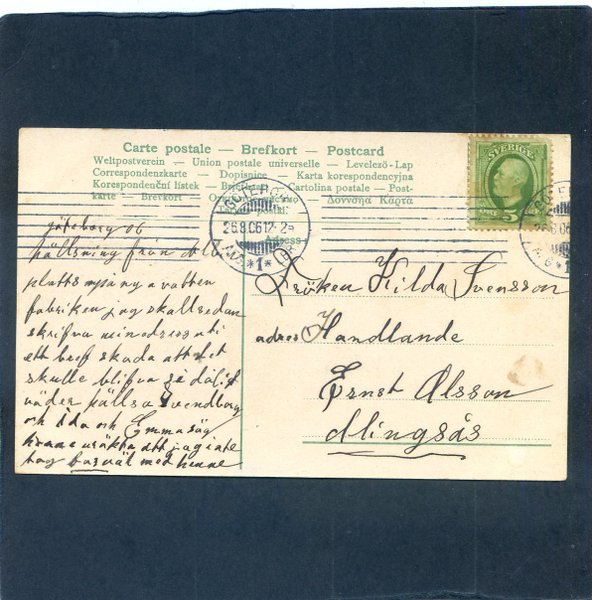 Carte postale – Brefkort – Postcard
Weltpostverein – Union postale universelle – Levelező-Lap
Correspondenzkarte – Dopisnice – Karta korespondencyjna
Korespondenční lístek – Cartolina postale – Post-
karte – Brevkort –
Adress
SVERIGE
5
26.8.06 12-2
*1*
göteborg 06
hällsning från
platts nya vatten
fabriken jag skall redan
skrifva min adress uti
ett bref skada att det
skulle blifva så dåligt
väder hällsa Svendborg
och Ida och Emma säg
henne att jag inte
tog med henne
Fröken Hilda Svensson
adres Handlande
Ernst Olsson
Alingsås